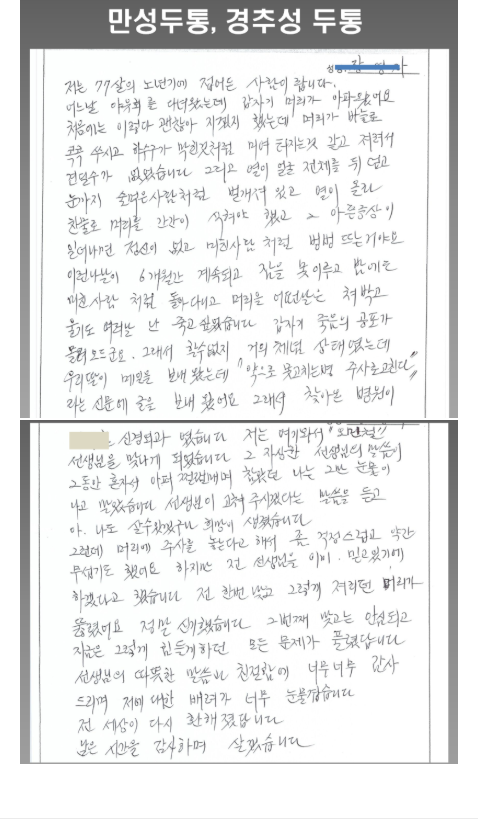 만성두통, 경추성 두통
저는 77살의 노년기에 접어든 사람이 랍니다.
어느날 야유회를 다녀왔는데 갑자기 머리가 아파왔어요
처음에는 이렇다 괜찮아 지겠지 했는데 머리가 바늘로
콕콕 쑤시고 하수구가 막힌것처럼 미여 터지는것 같고 저려서
견딜수가 없었습니다 그리고 열이 얼굴 전체를 뒤 덮고
눈까지 술먹은사람처럼 벌개져 있고 열이 올라
찬물로 머리를 간간이 식혀야 했고 그 아픈증상이
일어나면 정신이 없고 미친사람 처럼 벙벙 뜨는거야요
이런나날이 6개월간 계속되고 잠을 못이루고 밤에는
미친사람 처럼 돌아다니고 머리을 어떤날은 쳐박고
울기도 여러날 난 죽고싶었습니다 갑자기 죽음의 공포가
몰려오드군요. 그래서 할수없지 거의 체념 상태였는데
우리딸이 메일을 보내 왔는데 "약으로 못고치는병 주사로고친다"
라는 신문에 글을 보내 왔어요 그래서 찾아본 병원이
신경외과 였습니다 저는 여기와서
선생님을 만나게 되였습니다 그 자상한 선생님의 말씀이
그동안 혼자서 아퍼 쩔쩔매며 참았던 나는 그만 눈물이
나고 말았습니다 선생님이 고쳐 주시겠다는 말씀을 듣고
아. 나도 살수있겠구나 희망이 생겼습니다
그런데 머리에 주사를 놓는다고 해서 좀 걱정스럽고 약간
무섭기도 했어요 하지만 전 선생님을 이미. 믿고있기에
하겠다고 했습니다 전 한번 맞고 그렇게 저리던 머리가
뚫렸어요 정말 신기했습니다 그번째 맞고는 안심되고
지금은 그렇게 힘들게하던 모든 문제가 풀렸답니다
선생님의 따뜻한 말씀과 친절함에 너무너무 감사
드리며 저에 대한 배려가 너무 눈물겹습니다
전 세상이 다시 환해 졌답니다
남은 시간을 감사하며 살겠습니다